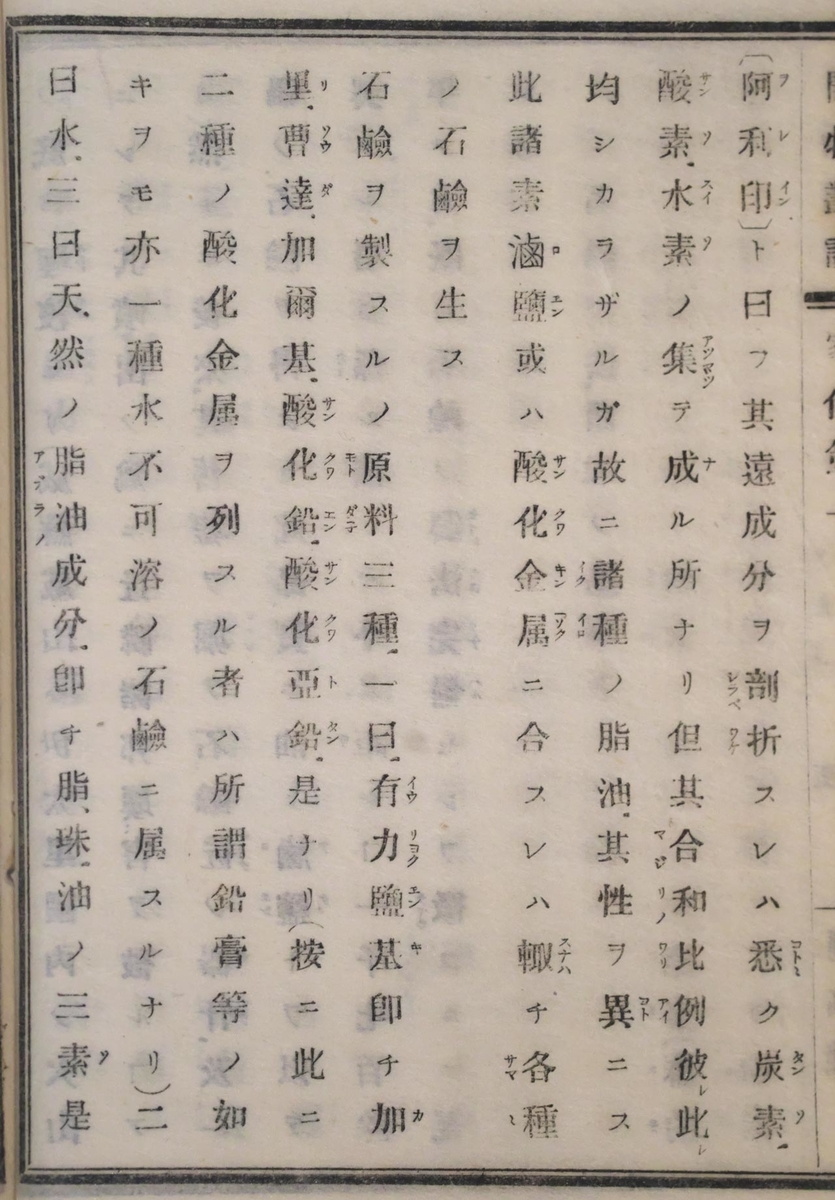 〔阿利印〕ト曰フ其遠成分ヲ剖折スレハ悉ク炭素
酸素水素ノ集テ成ル所ナリ但其合和比例彼レ此レ
均シカラザルガ故ニ諸種ノ脂油其性ヲ異ニス
此諸素滷鹽或ハ酸化金属ニ合スレハ輙チ各種
ノ石鹸ヲ生ス
石鹸ヲ製スルノ原料三種一曰有力鹽基即チ加
里曹達加爾基酸化鉛酸化亞鉛是ナリ（按ニ此ニ
二種ノ酸化金属ヲ列スル者ハ所謂鉛膏等ノ如
キヲモ亦一種水不可溶ノ石鹸ニ属スルナリ）二
曰水三曰天然ノ脂油成分即チ脂、珠油ノ三素是